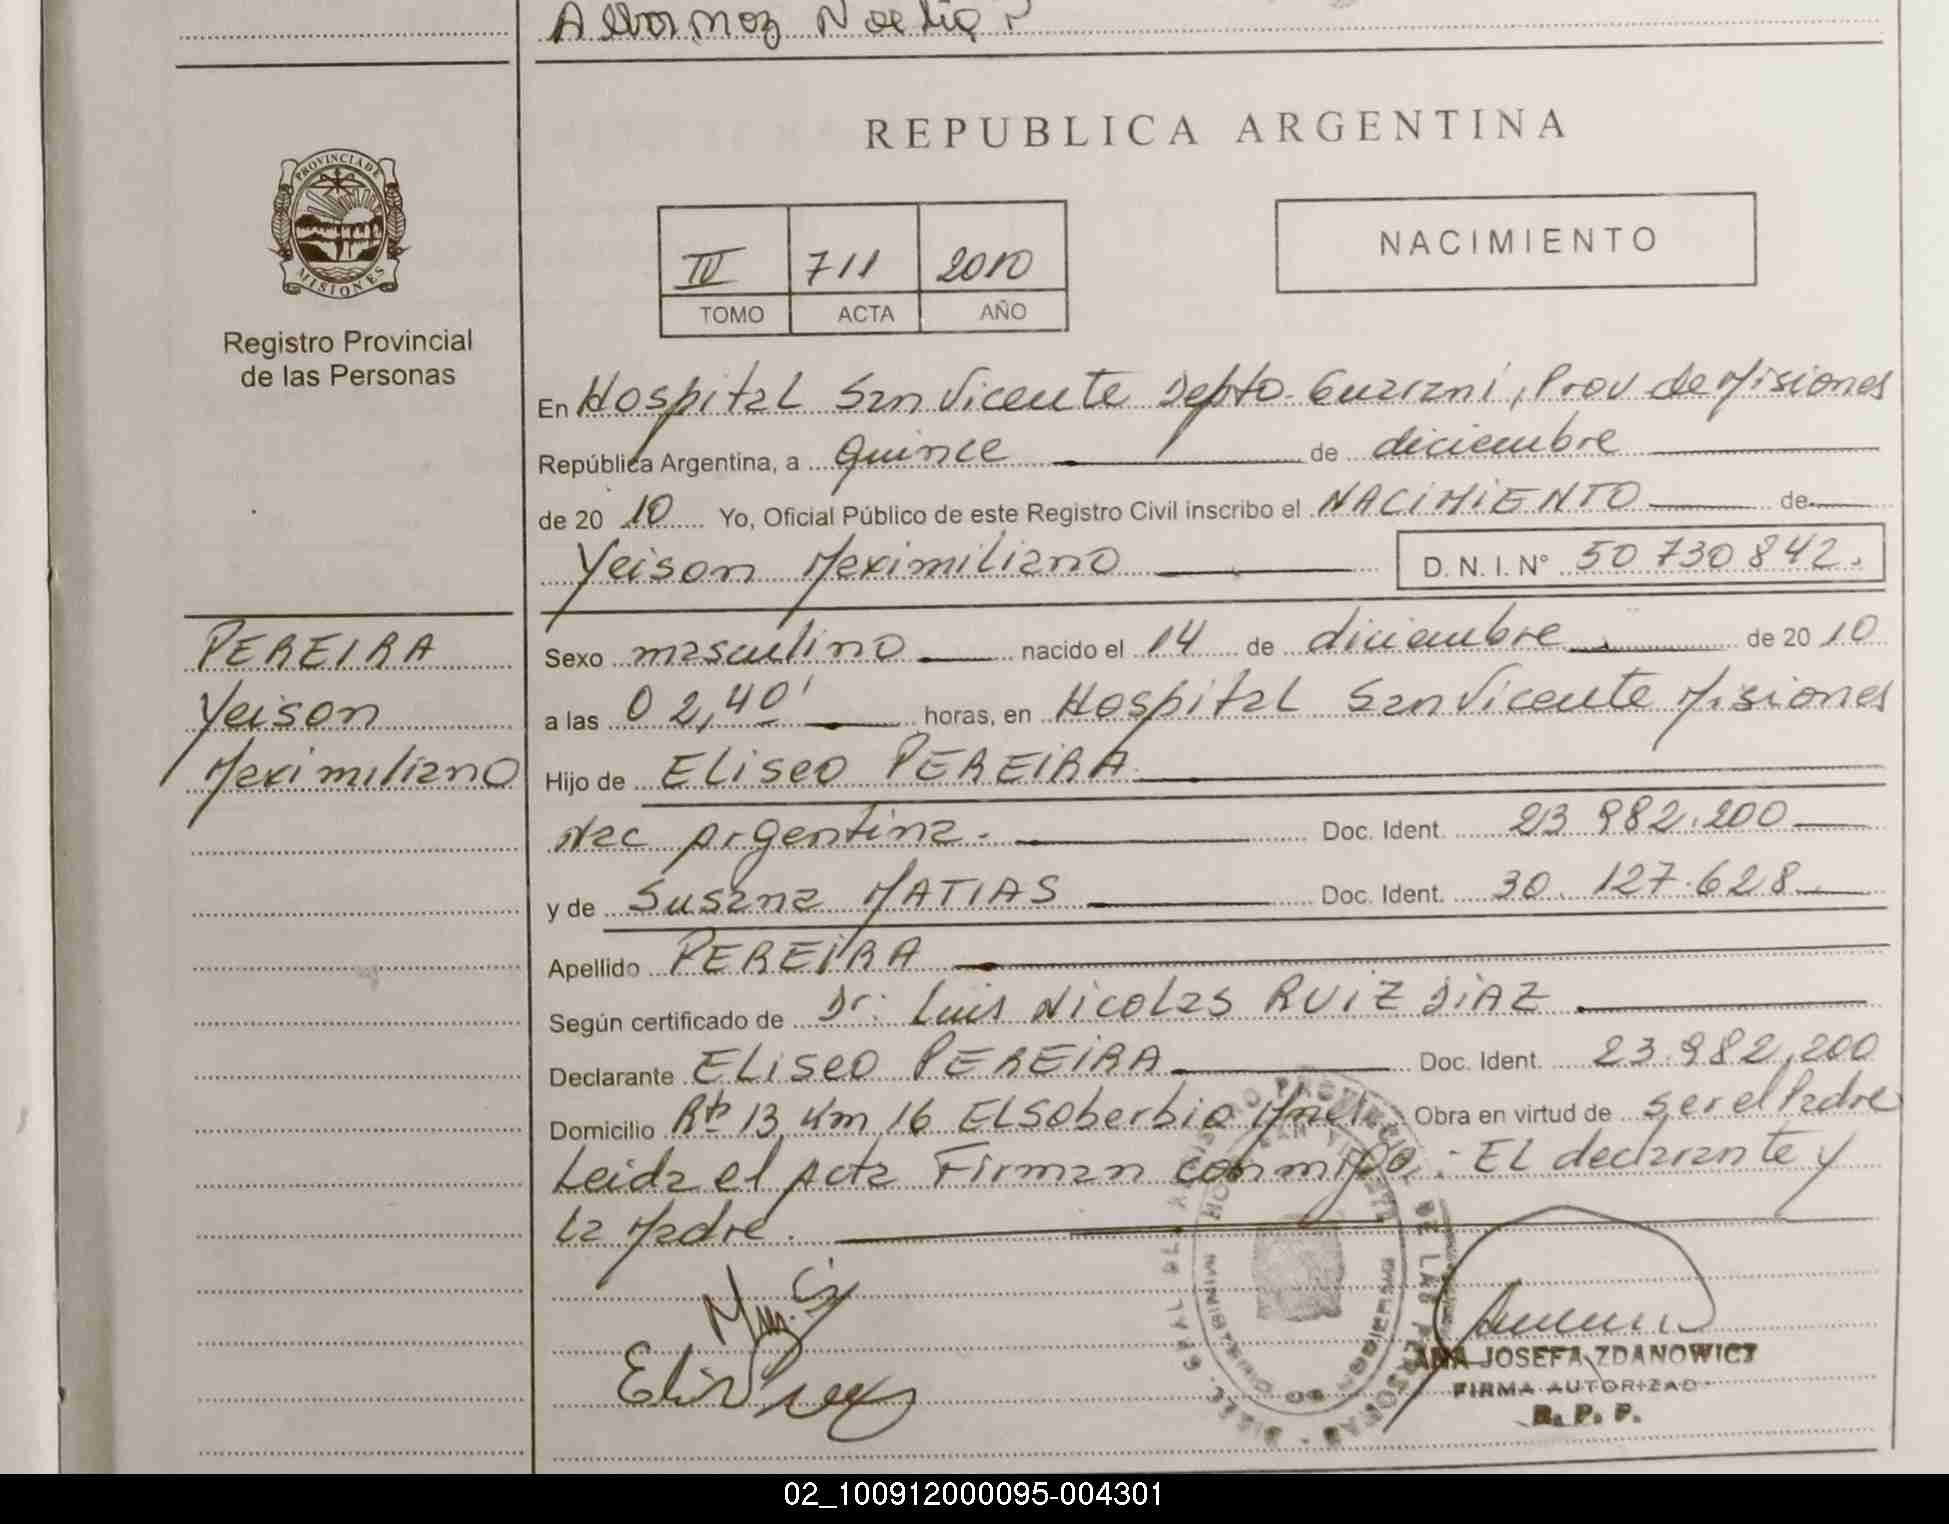 Albornoz Noelia
REPUBLICA ARGENTINA
PROVINCIA DE
MISIONES
Registro Provincial
de las Personas
IV 711 2010
TOMO ACTA AÑO
NACIMIENTO
En Hospital San Vicente Depto. Guarani, Prov de Misiones
República Argentina, a quince de diciembre
de 20 10 Yo, Oficial Público de este Registro Civil inscribo el NACIMIENTO de
Yeison Maximiliano D.N.I. Nº 50 730 842.
PEREIRA
Yeison
Maximiliano
Sexo masculino nacido el 14 de diciembre de 20 10
a las 02,40' horas, en Hospital San Vicente Misiones
Hijo de Eliseo PEREIRA
Nac Argentina. Doc. Ident. 23 982.200
y de Susana MATIAS Doc. Ident. 30.127.628
Apellido PEREIRA
Según certificado de Dr: Luis Nicolas RUIZ DIAZ
Declarante Eliseo PEREIRA Doc. Ident. 23.982.200
Domicilio Rta 13 Km 16 El Soberbio Obra en virtud de ser el Padre
Leida el Acta Firman conmigo: El declarante y
la Madre.
ANA JOSEFA ZDANOWICZ
FIRMA AUTORIZAD
R. P. P.
02_100912000095-004301